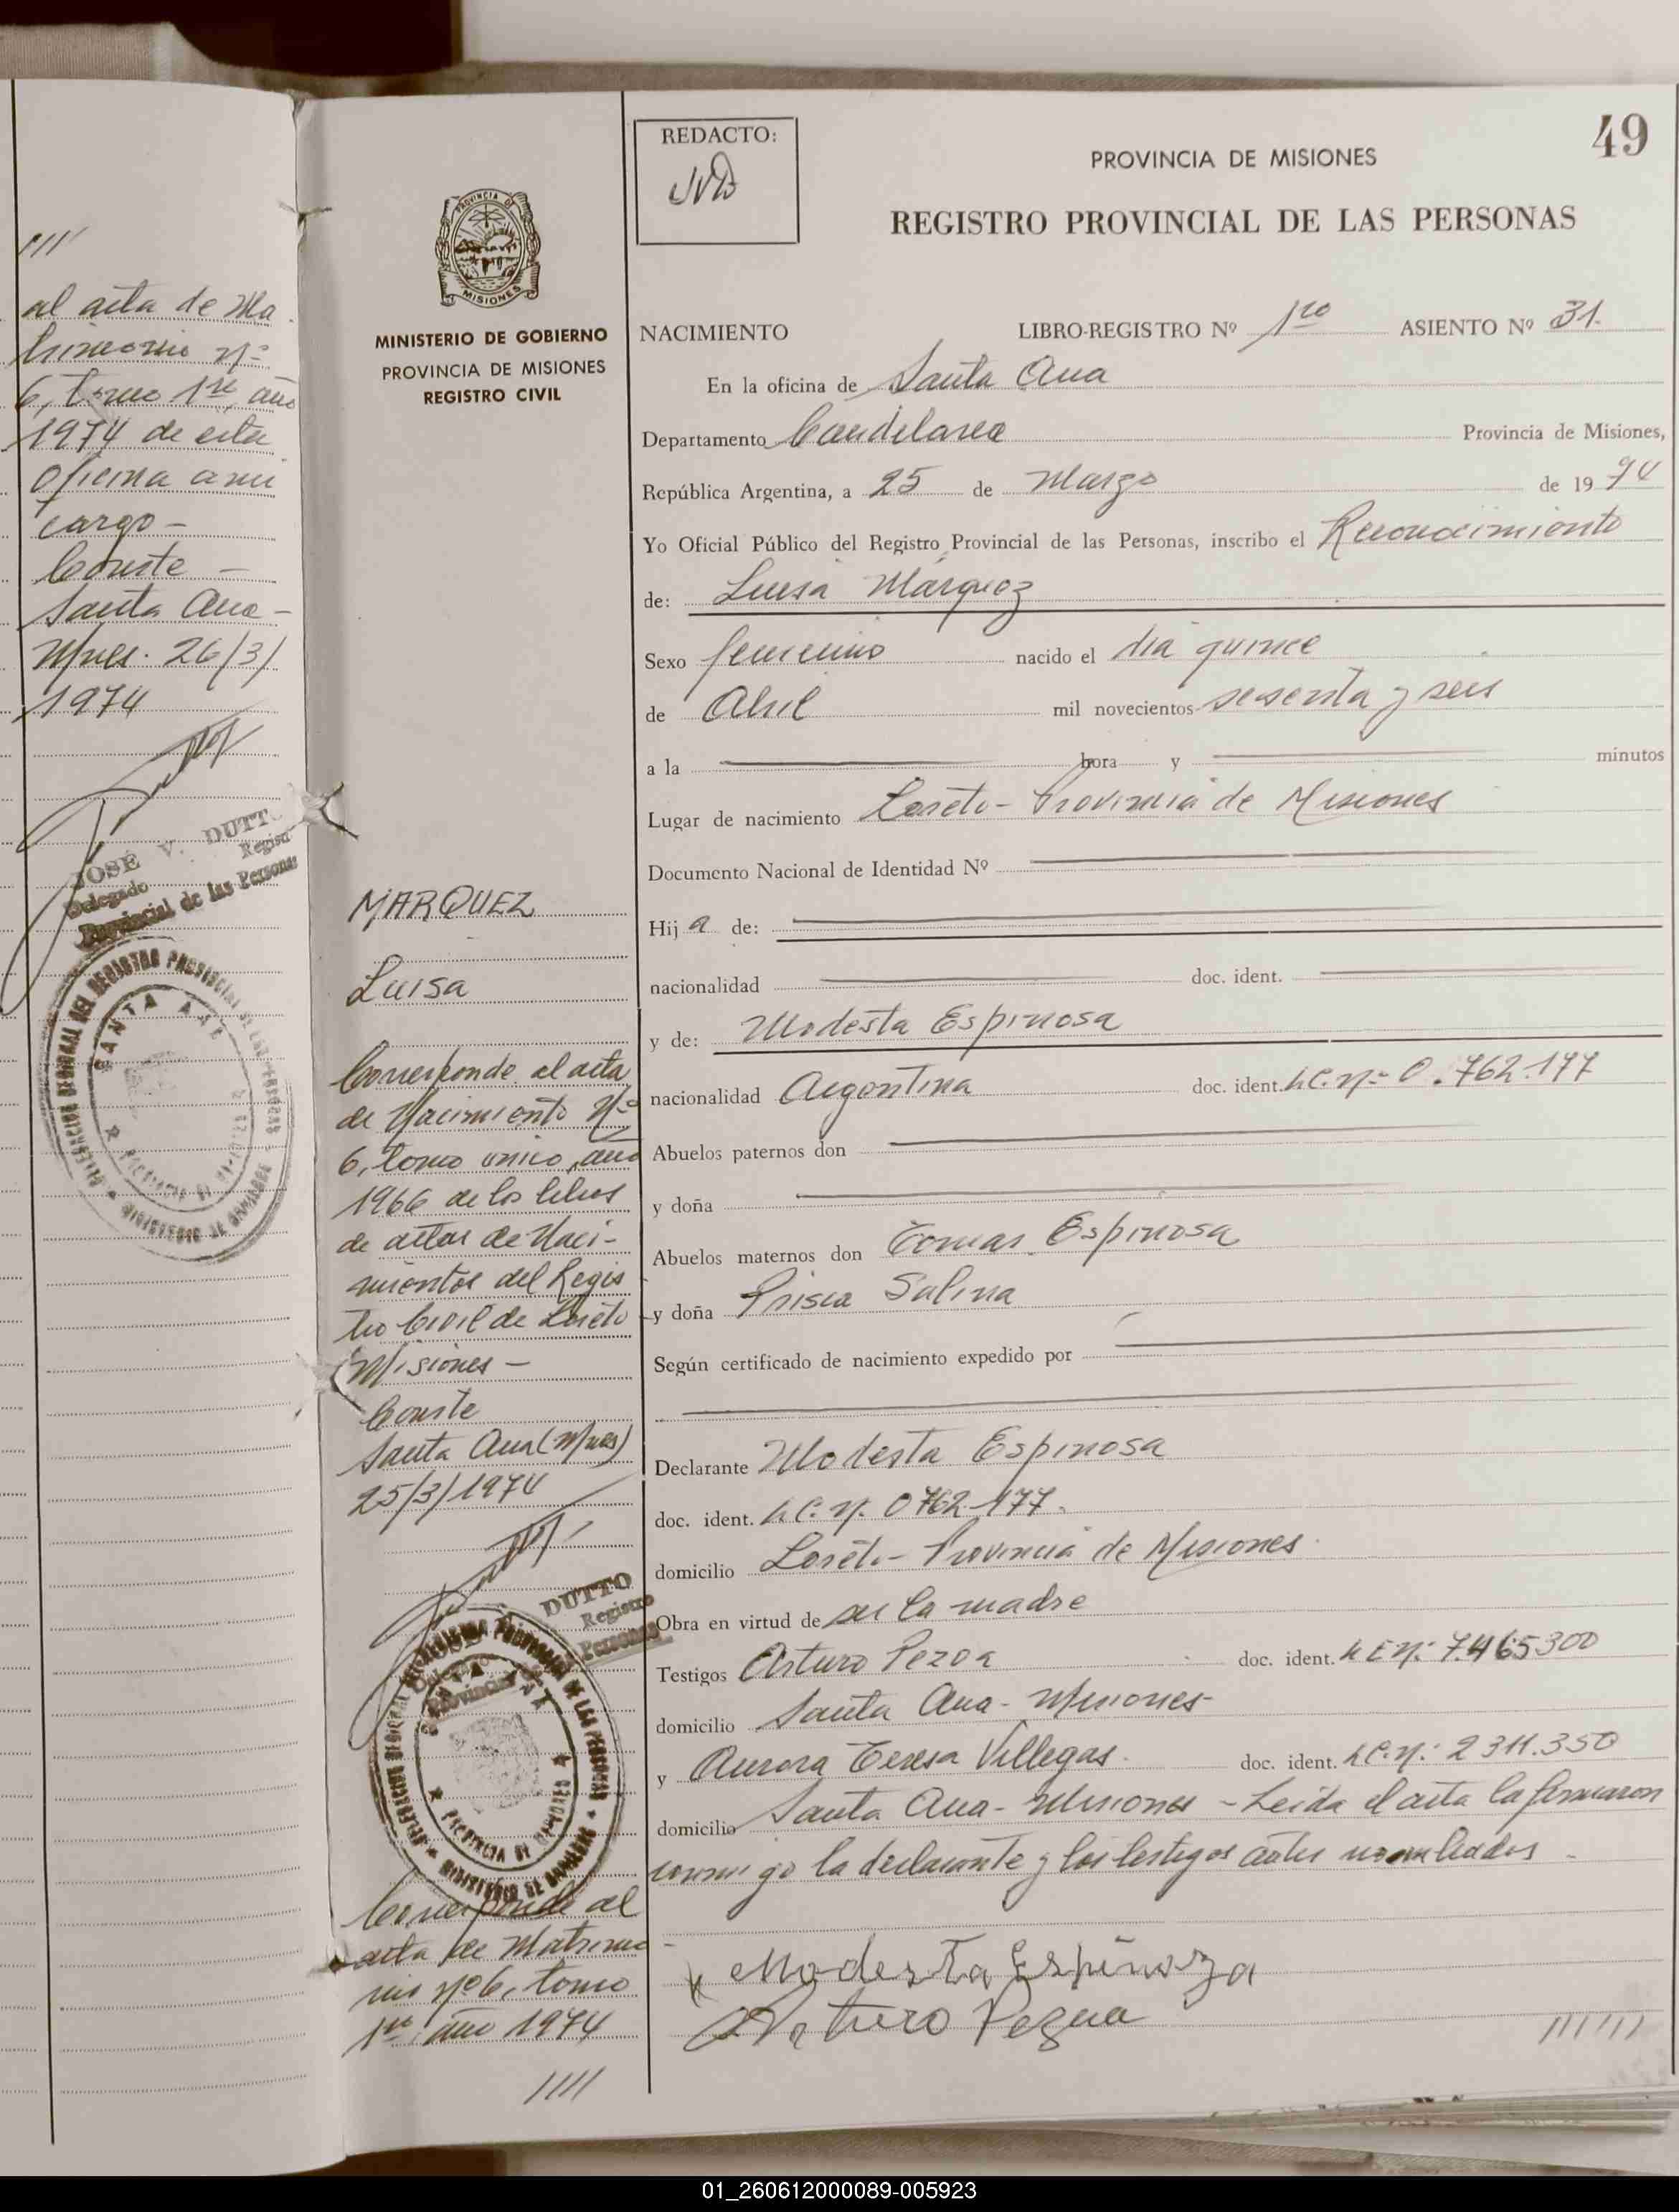 ////
al acta de Ma
trimonio Nº
6, tomo 1ro, año
1974 de esta
Oficina a mi
cargo -
Conste -
Santa Ana -
Mnes. 26/3/
1974
JOSÉ V. DUTTO
Delegado Regist
Provincial de las Personas
SANTA ANA
MINISTERIO DE GOBIERNO
PROVINCIA DE MISIONES
REGISTRO CIVIL
MARQUEZ
Luisa
Corresponde al acta
de Nacimiento Nº
6, tomo unico, año
1966 de los libros
de actas de Naci-
mientos del Regis
tro Civil de Loreto
Misiones -
Conste
Santa Ana (Mnes)
25/3/1974
DUTTO
Registro
Personas
Corresponde al
acta de Matrimo
nio Nº 6, tomo
1ro, año 1974
////
REDACTO:
49
PROVINCIA DE MISIONES
REGISTRO PROVINCIAL DE LAS PERSONAS
NACIMIENTO LIBRO-REGISTRO Nº 1ro ASIENTO Nº 31.
En la oficina de Santa Ana
Departamento Candelaria Provincia de Misiones,
República Argentina, a 25 de Marzo de 1974
Yo Oficial Público del Registro Provincial de las Personas, inscribo el Reconocimiento
de: Luisa Márquez
Sexo femenino nacido el dia quince
de Abril mil novecientos sesenta y seis
a la hora y minutos
Lugar de nacimiento Loreto - Provincia de Misiones
Documento Nacional de Identidad Nº
Hija de:
nacionalidad doc. ident.
y de: Modesta Espinosa
nacionalidad Argentina doc. ident. L.C. Nº 0.762.177
Abuelos paternos don
y doña
Abuelos maternos don Tomas Espinosa
y doña Prisca Salina
Según certificado de nacimiento expedido por
Declarante Modesta Espinosa
doc. ident. L.C. Nº 0762.177.
domicilio Loreto - Provincia de Misiones.
Obra en virtud de ser la madre
Testigos Arturo Pezoa doc. ident. L.E Nº: 7.465300
domicilio Santa Ana - Misiones -
y Aurora Teresa Villegas. doc. ident. L.C. Nº: 2311.350
domicilio Santa Ana - Misiones - Leida el acta la firmaron
conmigo la declarante y los testigos antes nombrados -
x Modesta Espinoza
Arturo Pezua
//////
01_260612000089-005923